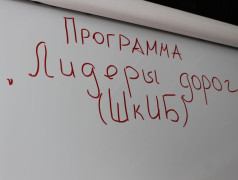 Программа
„Лидеры дорог
(ШкИБ)